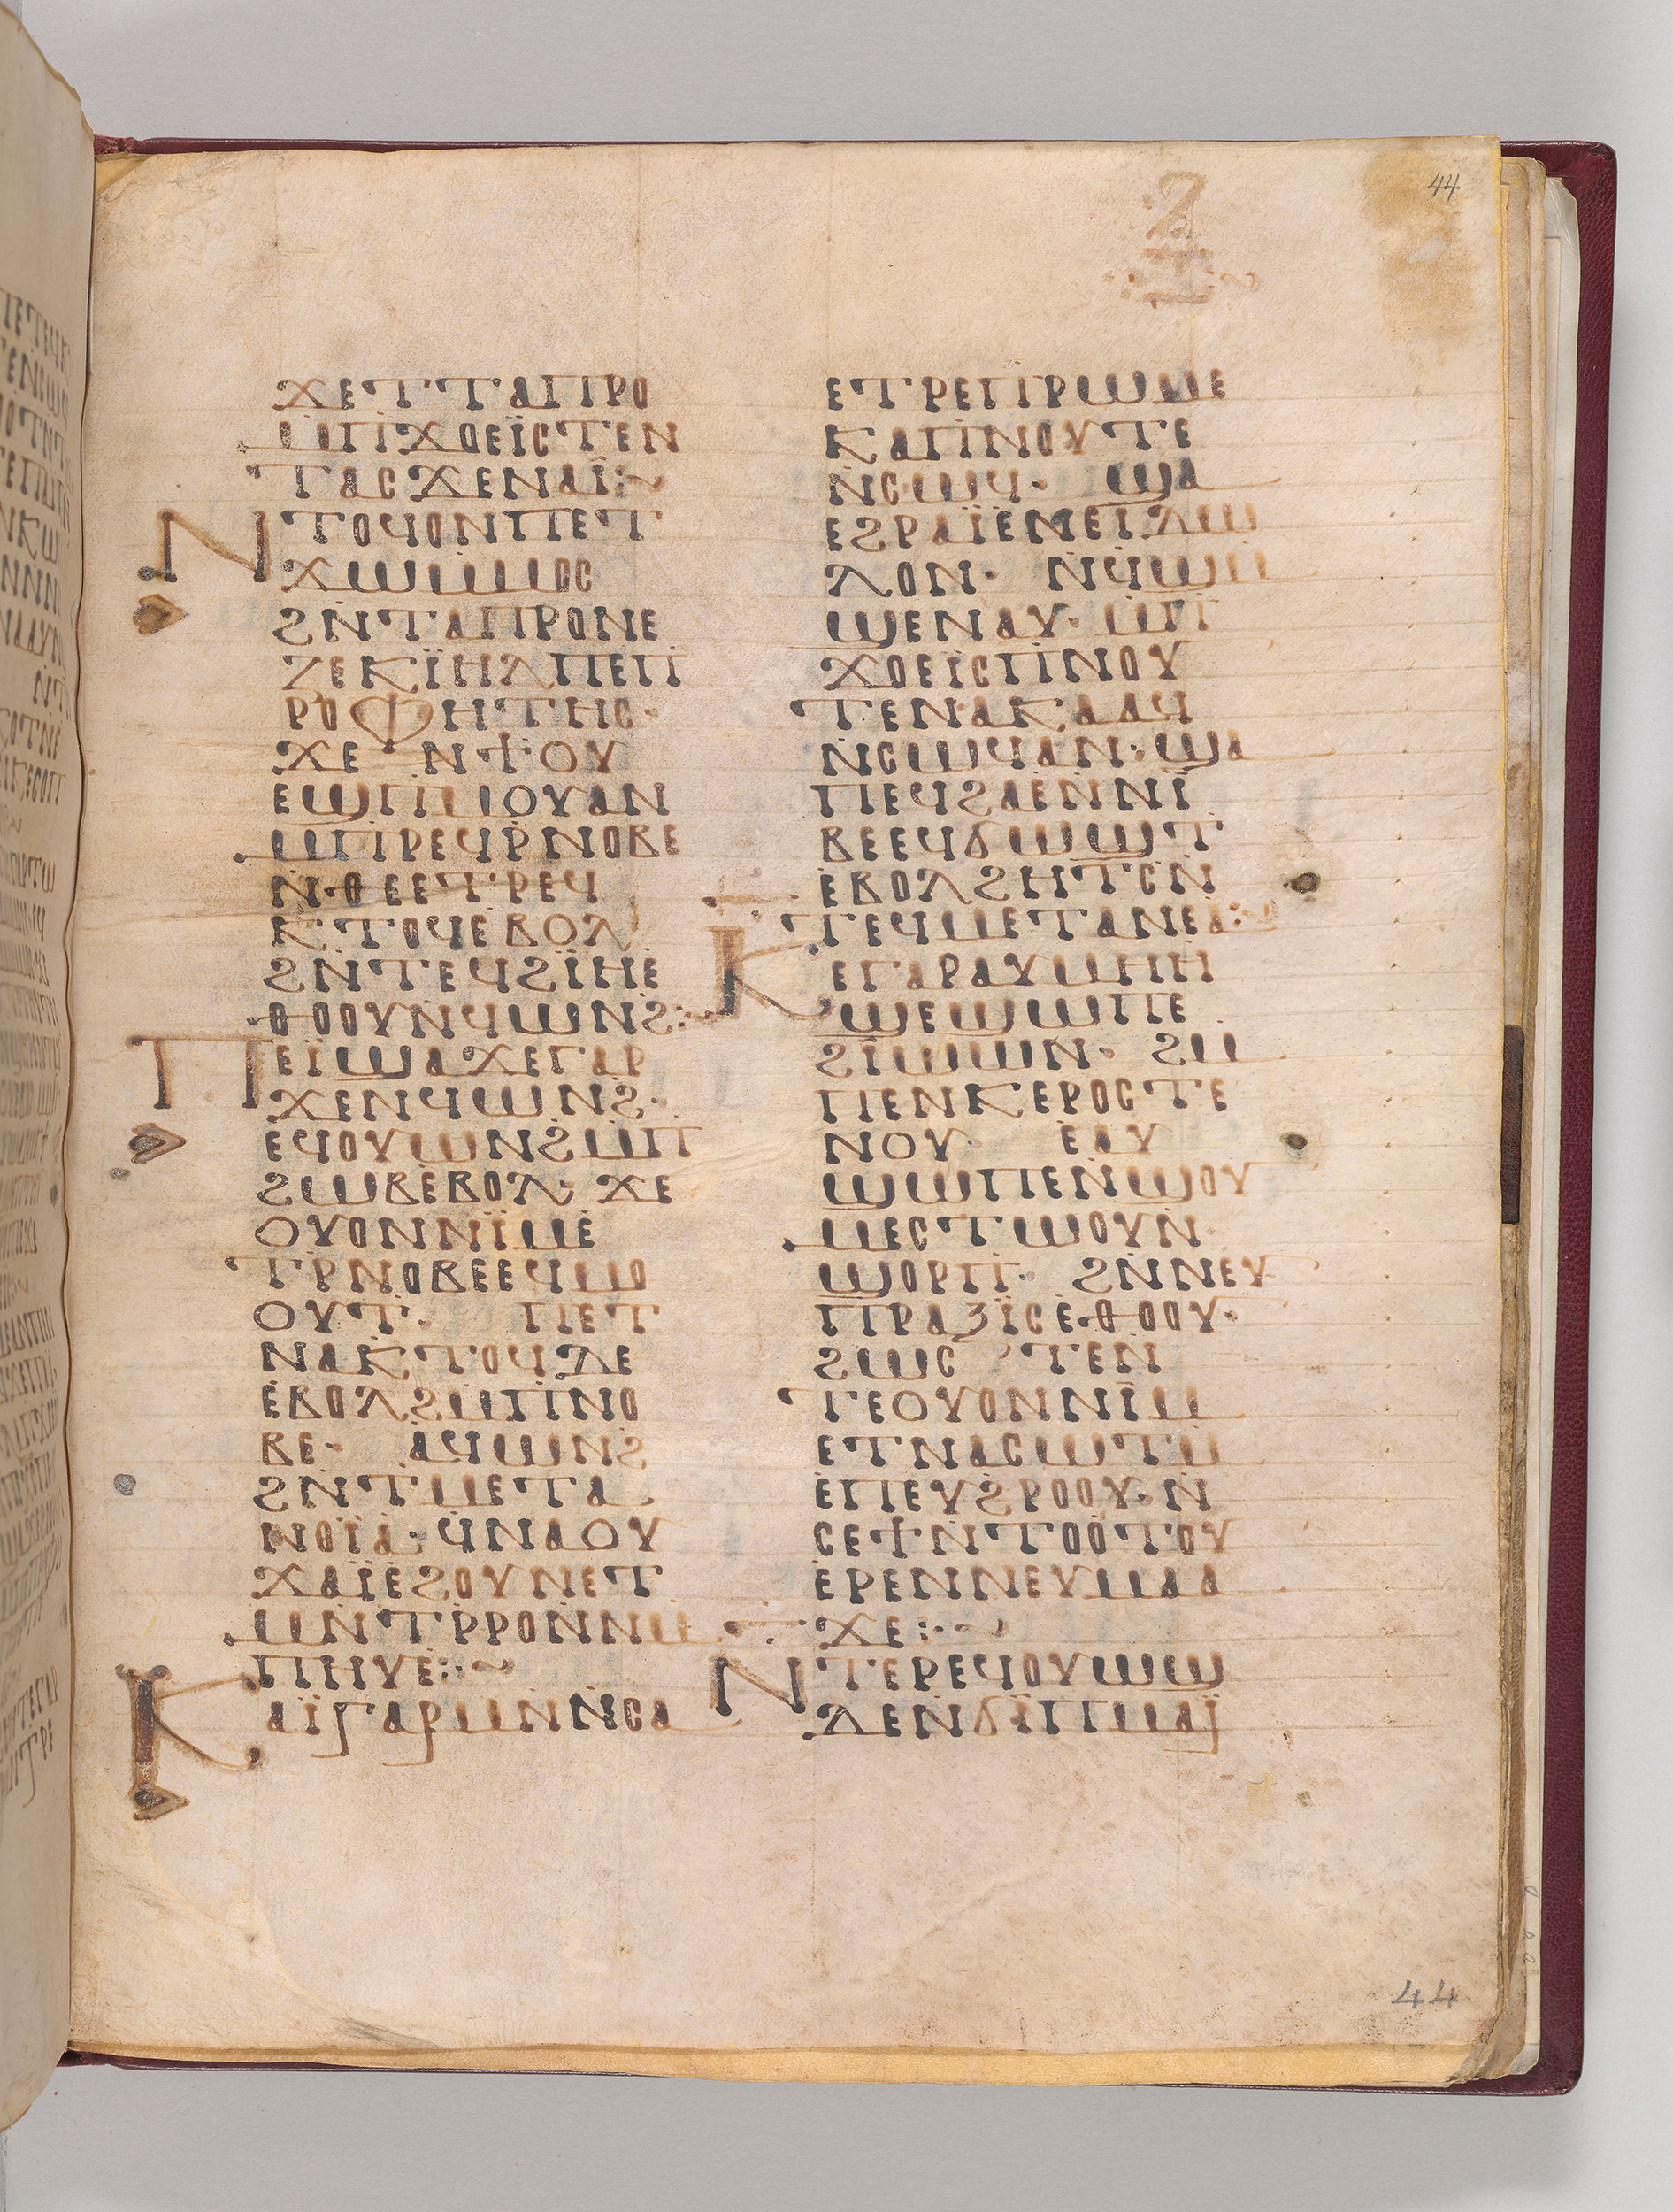 44
ϩ
ϫⲉⲧⲧⲁⲡⲣⲟ
ⲙⲡϫⲟⲉⲓⲥⲧⲉⲛ
ⲧⲁⲥϫⲉⲛⲁⲓ̈:~
ⲛⲧⲟϥⲟⲛⲡⲉⲧ
ϫⲱⲙⲙⲟⲥ
ϩⲛⲧⲁⲡⲣⲟⲛⲉ
ⲍⲉⲕⲓ̈ⲏⲗⲡⲉⲡ
ⲣⲟⲫⲏⲧⲏⲥ·
ϫⲉ ⲛϯⲟⲩ
ⲉϣⲡⲙⲟⲩⲁⲛ
ⲙⲡⲣⲉϥⲣⲛⲟⲃⲉ
ⲛⲑⲉⲉⲧⲣⲉϥ
ⲕⲧⲟϥⲉⲃⲟⲗ
ϩⲛⲧⲉϥϩⲓ̈ⲏⲉ
ⲑⲟⲟⲩⲛϥⲱⲛϩ:
ⲡⲉⲓ̈ϣⲁϫⲉⲅⲁⲣ
ϫⲉⲛϥⲱⲛϩ·
ⲉϥⲟⲩⲱⲛϩⲙⲡ
ϩⲱⲃⲉⲃⲟⲗ· ϫⲉ
ⲟⲩⲟⲛⲛⲓ̈ⲙⲉ
ⲧⲣⲛⲟⲃⲉⲉϥⲙⲟ
ⲟⲩⲧ· ⲡⲉⲧ
ⲛⲁⲕⲧⲟϥⲇⲉ
ⲉⲃⲟⲗϩⲙⲡⲛⲟ
ⲃⲉ· ⲁϥⲱⲛϩ
ϩⲛⲧⲙⲉⲧⲁ
ⲛⲟⲓ̈ⲁ·ϥⲛⲁⲟⲩ
ϫⲁⲓ̈ⲉϩⲟⲩⲛⲉⲧ
ⲙⲛⲧⲣⲣⲟⲛⲙ
ⲡⲏⲩⲉ:·~
ⲕⲁⲓ̈ⲅⲁⲣⲙⲛⲛⲥⲁ
ⲉⲧⲣⲉⲡⲣⲱⲙⲉ
ⲕⲁⲡⲛⲟⲩⲧⲉ
ⲛⲥⲱϥ· ϣⲁ
ⲉϩⲣⲁⲓ̈ⲉⲛⲉⲓⲇⲱ
ⲗⲟⲛ· ⲛϥϣⲙ
ϣⲉⲛⲁⲩ· ⲙⲡ
ϫⲟⲉⲓⲥⲡⲛⲟⲩ
ⲧⲉⲛⲁⲕⲁⲁϥ
ⲛⲥⲱϥⲁⲛ·ϣⲁ
ⲡⲉϥϩⲁⲉⲛⲛⲓ̈
ⲃⲉⲉϥϭⲱϣⲧ
ⲉⲃⲟⲗϩⲏⲧⲥⲛ
ⲧⲉϥⲙⲉⲧⲁⲛⲉⲁ:~
ⲕⲉⲅⲁⲣⲁⲩⲙⲏⲏ
ϣⲉϣⲱⲡⲉ
ϩⲓ̈ⲱⲱⲛ· ϩⲙ
ⲡⲉⲛⲕⲉⲣⲟⲥⲧⲉ
ⲛⲟⲩ· ⲉⲁⲩ
ϣⲱⲡⲉⲛϣⲟⲩ
ⲙⲉⲥⲧⲱⲟⲩⲛ
ϣⲟⲣⲡ· ϩⲛⲛⲉⲩ
ⲡⲣⲁⲝⲓ̈ⲥⲉⲑⲟⲟⲩ·
ϩⲱⲥ ⲧⲉⲛ
ⲧⲉⲟⲩⲟⲛⲛⲓ̈ⲙ
ⲉⲧⲛⲁⲥⲱⲧⲙ
ⲉⲡⲉⲩϩⲣⲟⲟⲩ·ⲛ
ⲥⲉϯⲛⲧⲟⲟⲧⲟⲩ
ⲉⲣⲉⲛⲛⲉⲩⲙⲁⲁ
ϫⲉ:·~
ⲛⲧⲉⲣⲉϥⲟⲩⲱϣ
ⲇⲉⲛϭⲓ̈ⲡⲙⲁⲓ̈
44